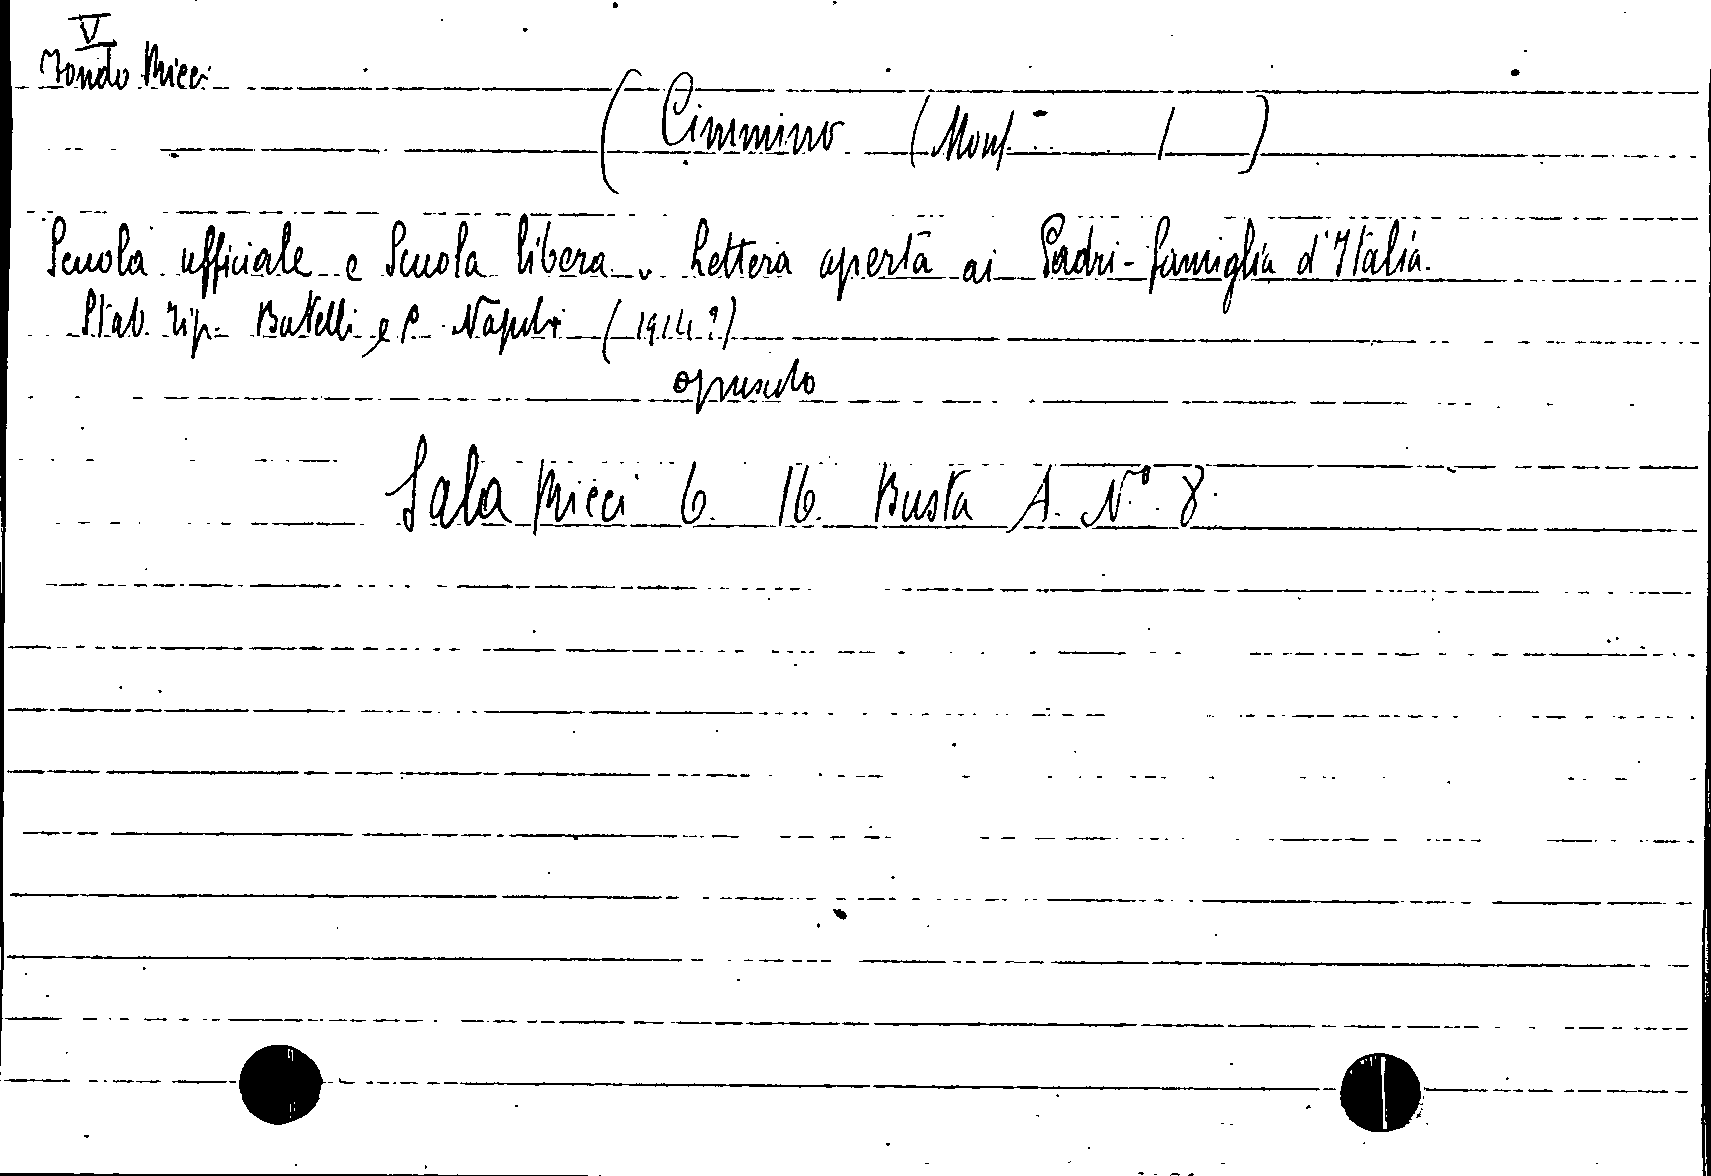 V
Fondo Ricci
(Cimmino (Mons. )
Scuola ufficiale e Scuola libera. Lettera aperta ai Padri-famiglia d'Italia.
Stab. Tip. Batelli e C. Napoli (1914?)
opuscolo
Sala Ricci 6. 16. Busta A. N° 8.